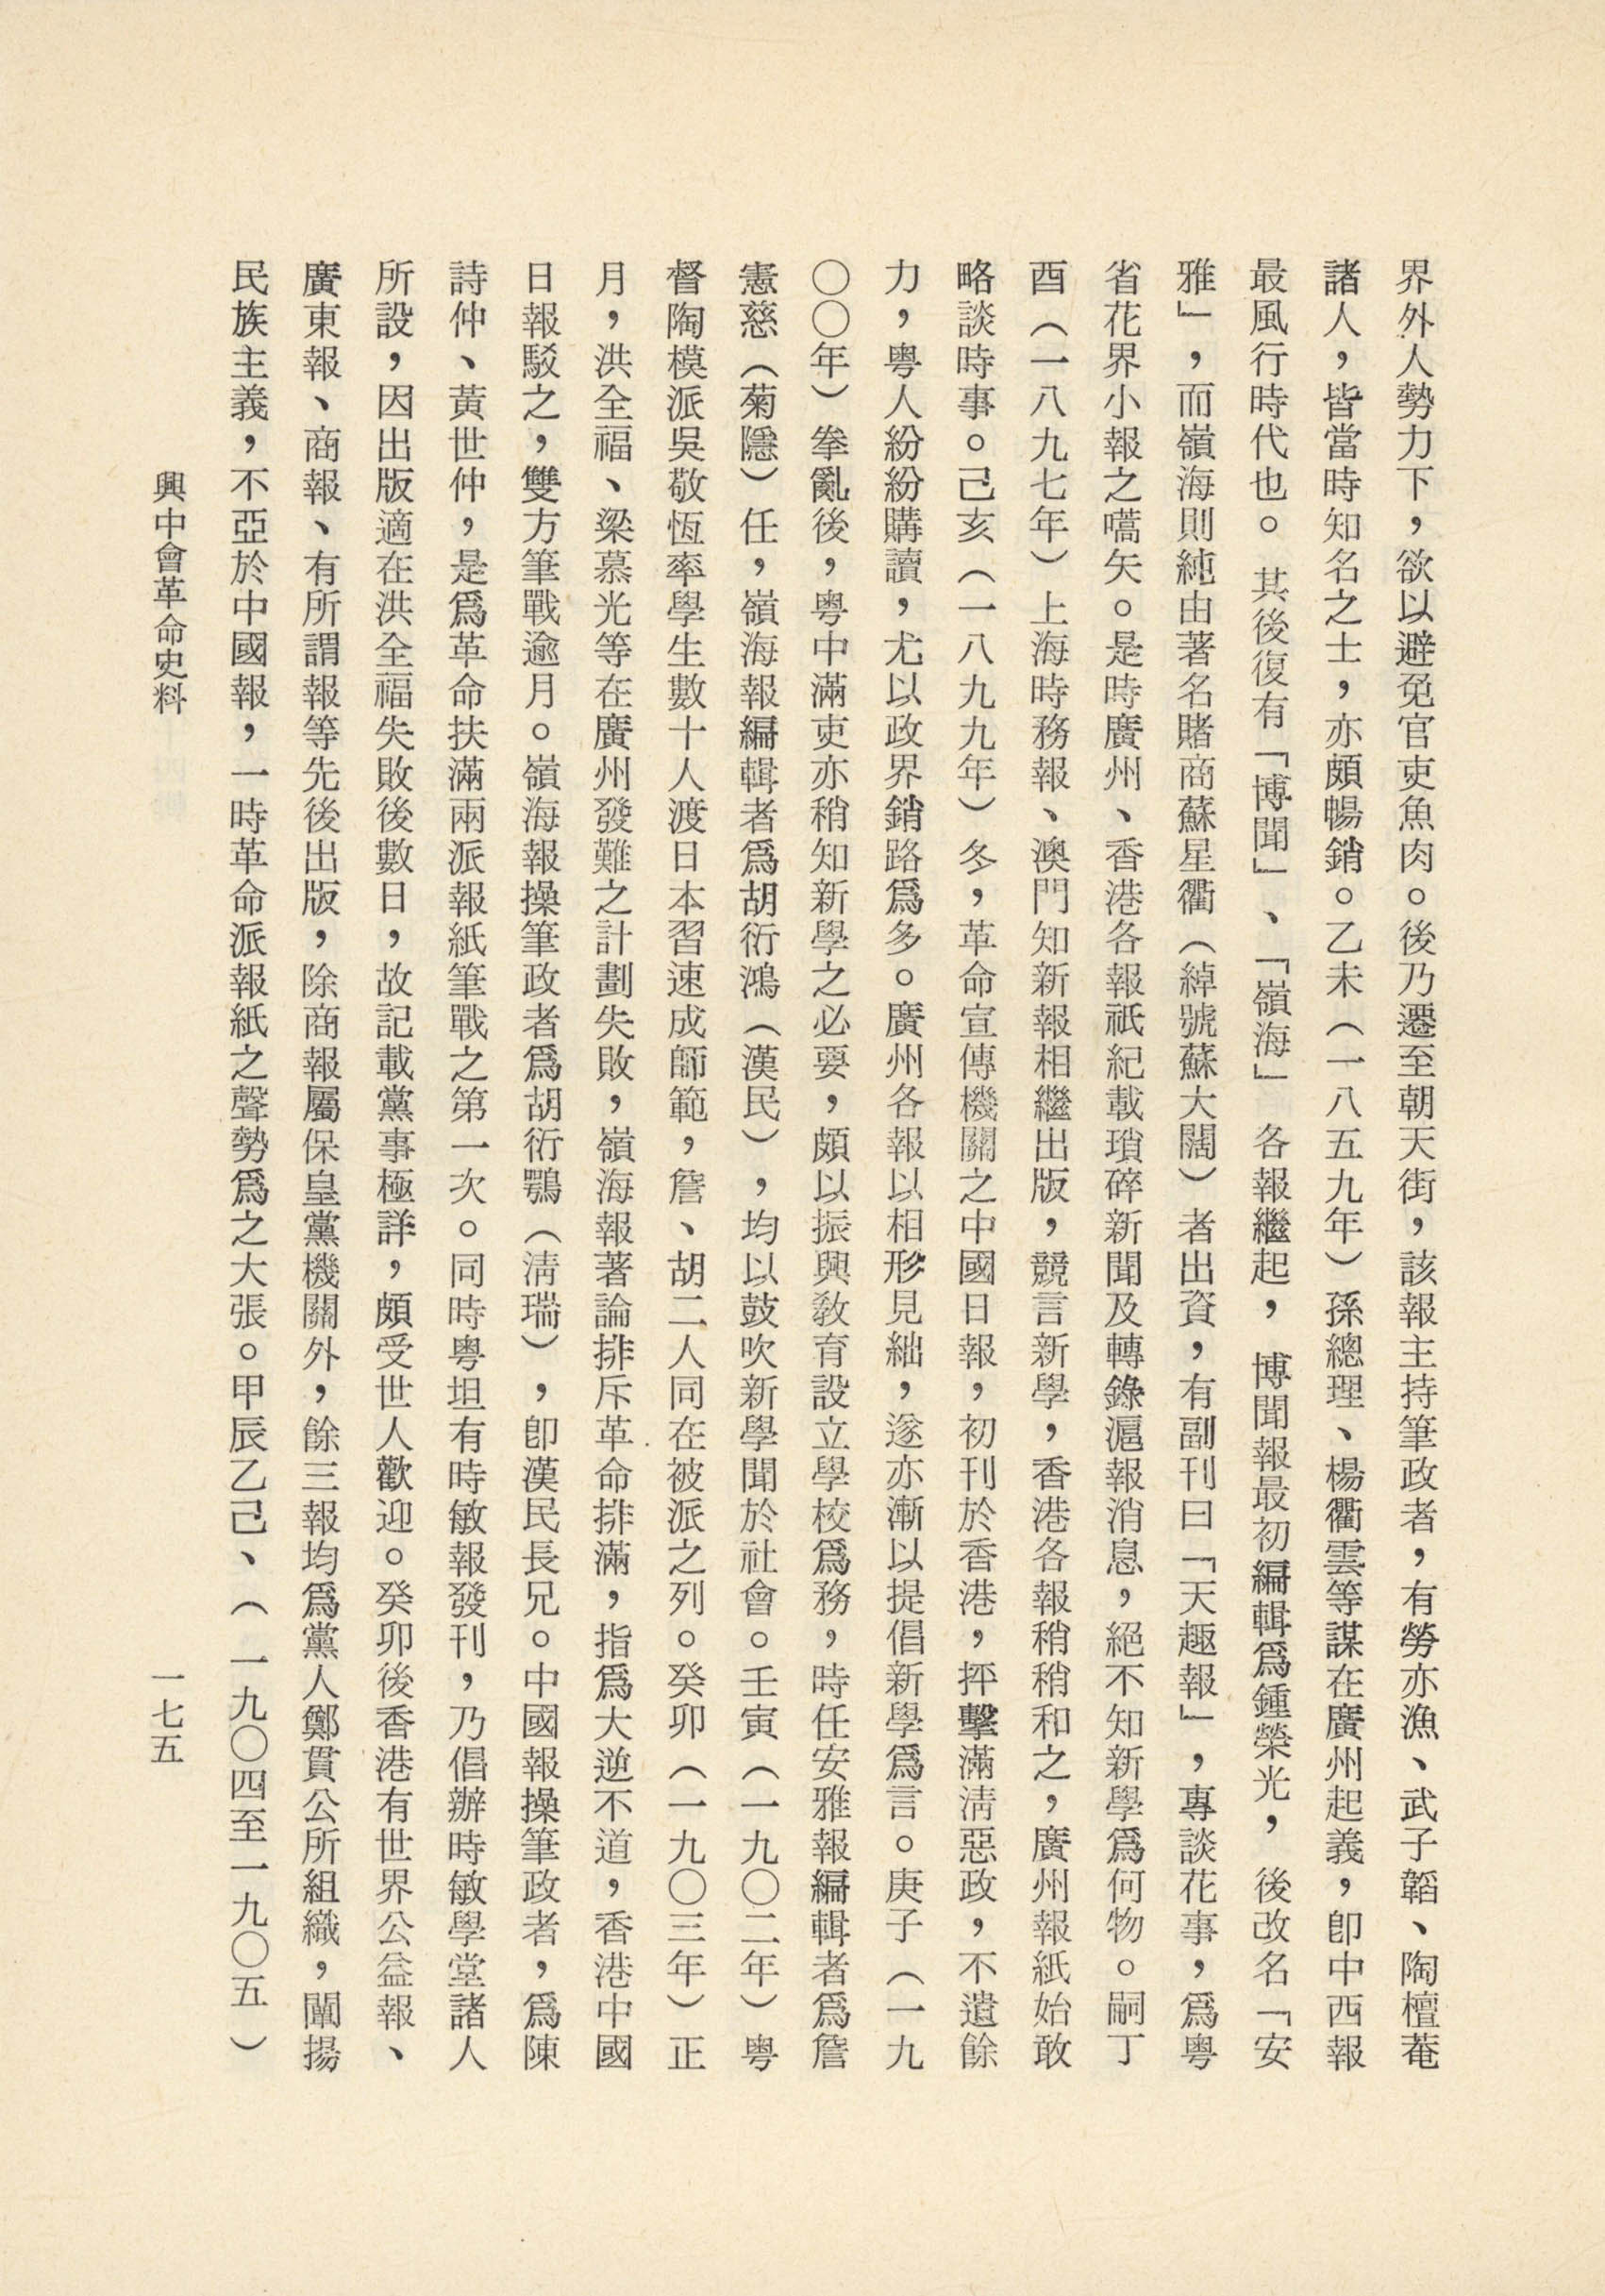 界外人勢力下，欲以避免官吏魚肉。後乃遷至朝天街，該報主持筆政者，有勞亦漁、武子韜、陶檀菴
諸人，皆當時知名之士，亦頗暢銷。乙未（一八五九年）孫總理、楊衢雲等謀在廣州起義，卽中西報
最風行時代也。其後復有「博聞」、「嶺海」各報繼起，博聞報最初編輯爲鍾榮光，後改名「安
雅」，而嶺海則純由著名賭商蘇星衢（綽號蘇大闊）者出資，有副刊曰「天趣報」，專談花事，爲粵
省花界小報之嚆矢。是時廣州、香港各報祇紀載瑣碎新聞及轉錄滬報消息，絕不知新學爲何物。嗣丁
酉（一八九七年）上海時務報、澳門知新報相繼出版，競言新學，香港各報稍稍和之，廣州報紙始敢
略談時事。己亥（一八九九年）冬，革命宣傳機關之中國日報，初刊於香港，抨擊滿淸惡政，不遺餘
力，粵人紛紛購讀，尤以政界銷路爲多。廣州各報以相形見絀，遂亦漸以提倡新學爲言。庚子（一九
〇〇年）拳亂後，粵中滿吏亦稍知新學之必要，頗以振興敎育設立學校爲務，時任安雅報編輯者爲詹
憲慈（菊隱）任，嶺海報編輯者爲胡衍鴻（漢民），均以鼓吹新學聞於社會。壬寅（一九〇二年）粵
督陶模派吳敬恆率學生數十人渡日本習速成師範，詹、胡二人同在被派之列。癸卯（一九〇三年）正
月，洪全福、梁慕光等在廣州發難之計劃失敗，嶺海報著論排斥革命排滿，指爲大逆不道，香港中國
日報駁之，雙方筆戰逾月。嶺海報操筆政者爲胡衍鶚（淸瑞），卽漢民長兄。中國報操筆政者，爲陳
詩仲、黃世仲，是爲革命扶滿兩派報紙筆戰之第一次。同時粵坦有時敏報發刊，乃倡辦時敏學堂諸人
所設，因出版適在洪全福失敗後數日，故記載黨事極詳，頗受世人歡迎。癸卯後香港有世界公益報、
廣東報、商報、有所謂報等先後出版，除商報屬保皇黨機關外，餘三報均爲黨人鄭貫公所組織，闡揚
民族主義，不亞於中國報，一時革命派報紙之聲勢爲之大張。甲辰乙己、（一九〇四至一九〇五）
興中會革命史料
一七五